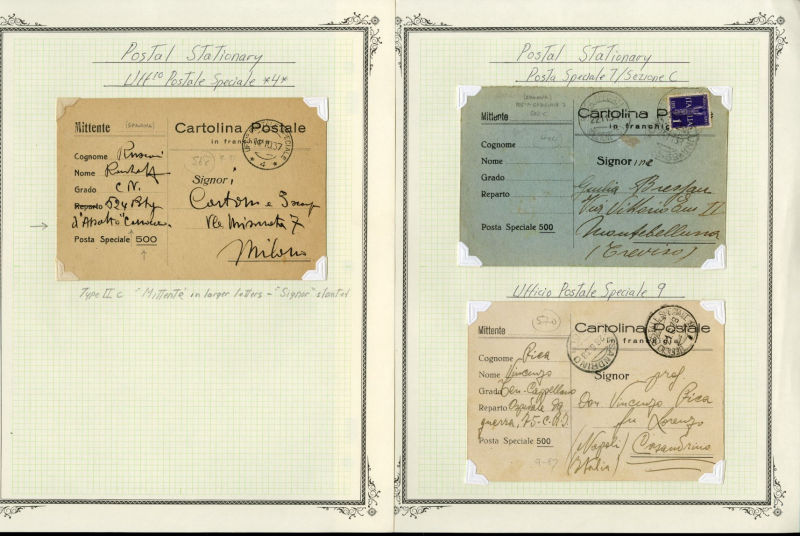 Postal Stationary
Uff.io Postale Speciale *4*
Mittente
(SPAGNA)
Cartolina Postale
in franchigia
Cognome
Nome
Grado C.N.
Reparto 524 Btg.
d'Assalto
Posta Speciale 500
10.37
* 4 *
Signori
7
Milano
Type II c "Mittente" in larger letters - "Signor" slanted
Postal Stationary
Posta Speciale 7/Sezione C
Mittente
(SPAGNA)
Cartolina Postale
in franchigia
Cognome
Nome
Grado
Reparto
Posta Speciale 500
Signorine
Giulia Bressan
Via Vittorio Em II
Montebelluna
(Treviso)
Ufficio Postale Speciale 9
Mittente
(520)
Cartolina Postale
in franchigia
Cognome Pica
Nome Vincenzo
Grado Ten. Cappellano
Reparto Ospedale da
guerra, 75-C.
Posta Speciale 500
CASANDRINO
Signor prof
Don Vincenzo Pica
fu Lorenzo
(Napoli) Casandrino
(Italia)